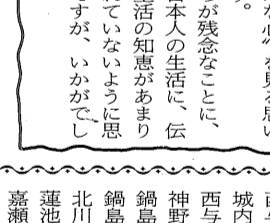 な心〟を見る思い
。
らが残念なことに、
日本人の生活に、伝
生活の知恵があまり
れていないように思
ですが、いかがでし
城内
西与
神野
鍋島
鍋島
北川
蓮池
嘉瀬